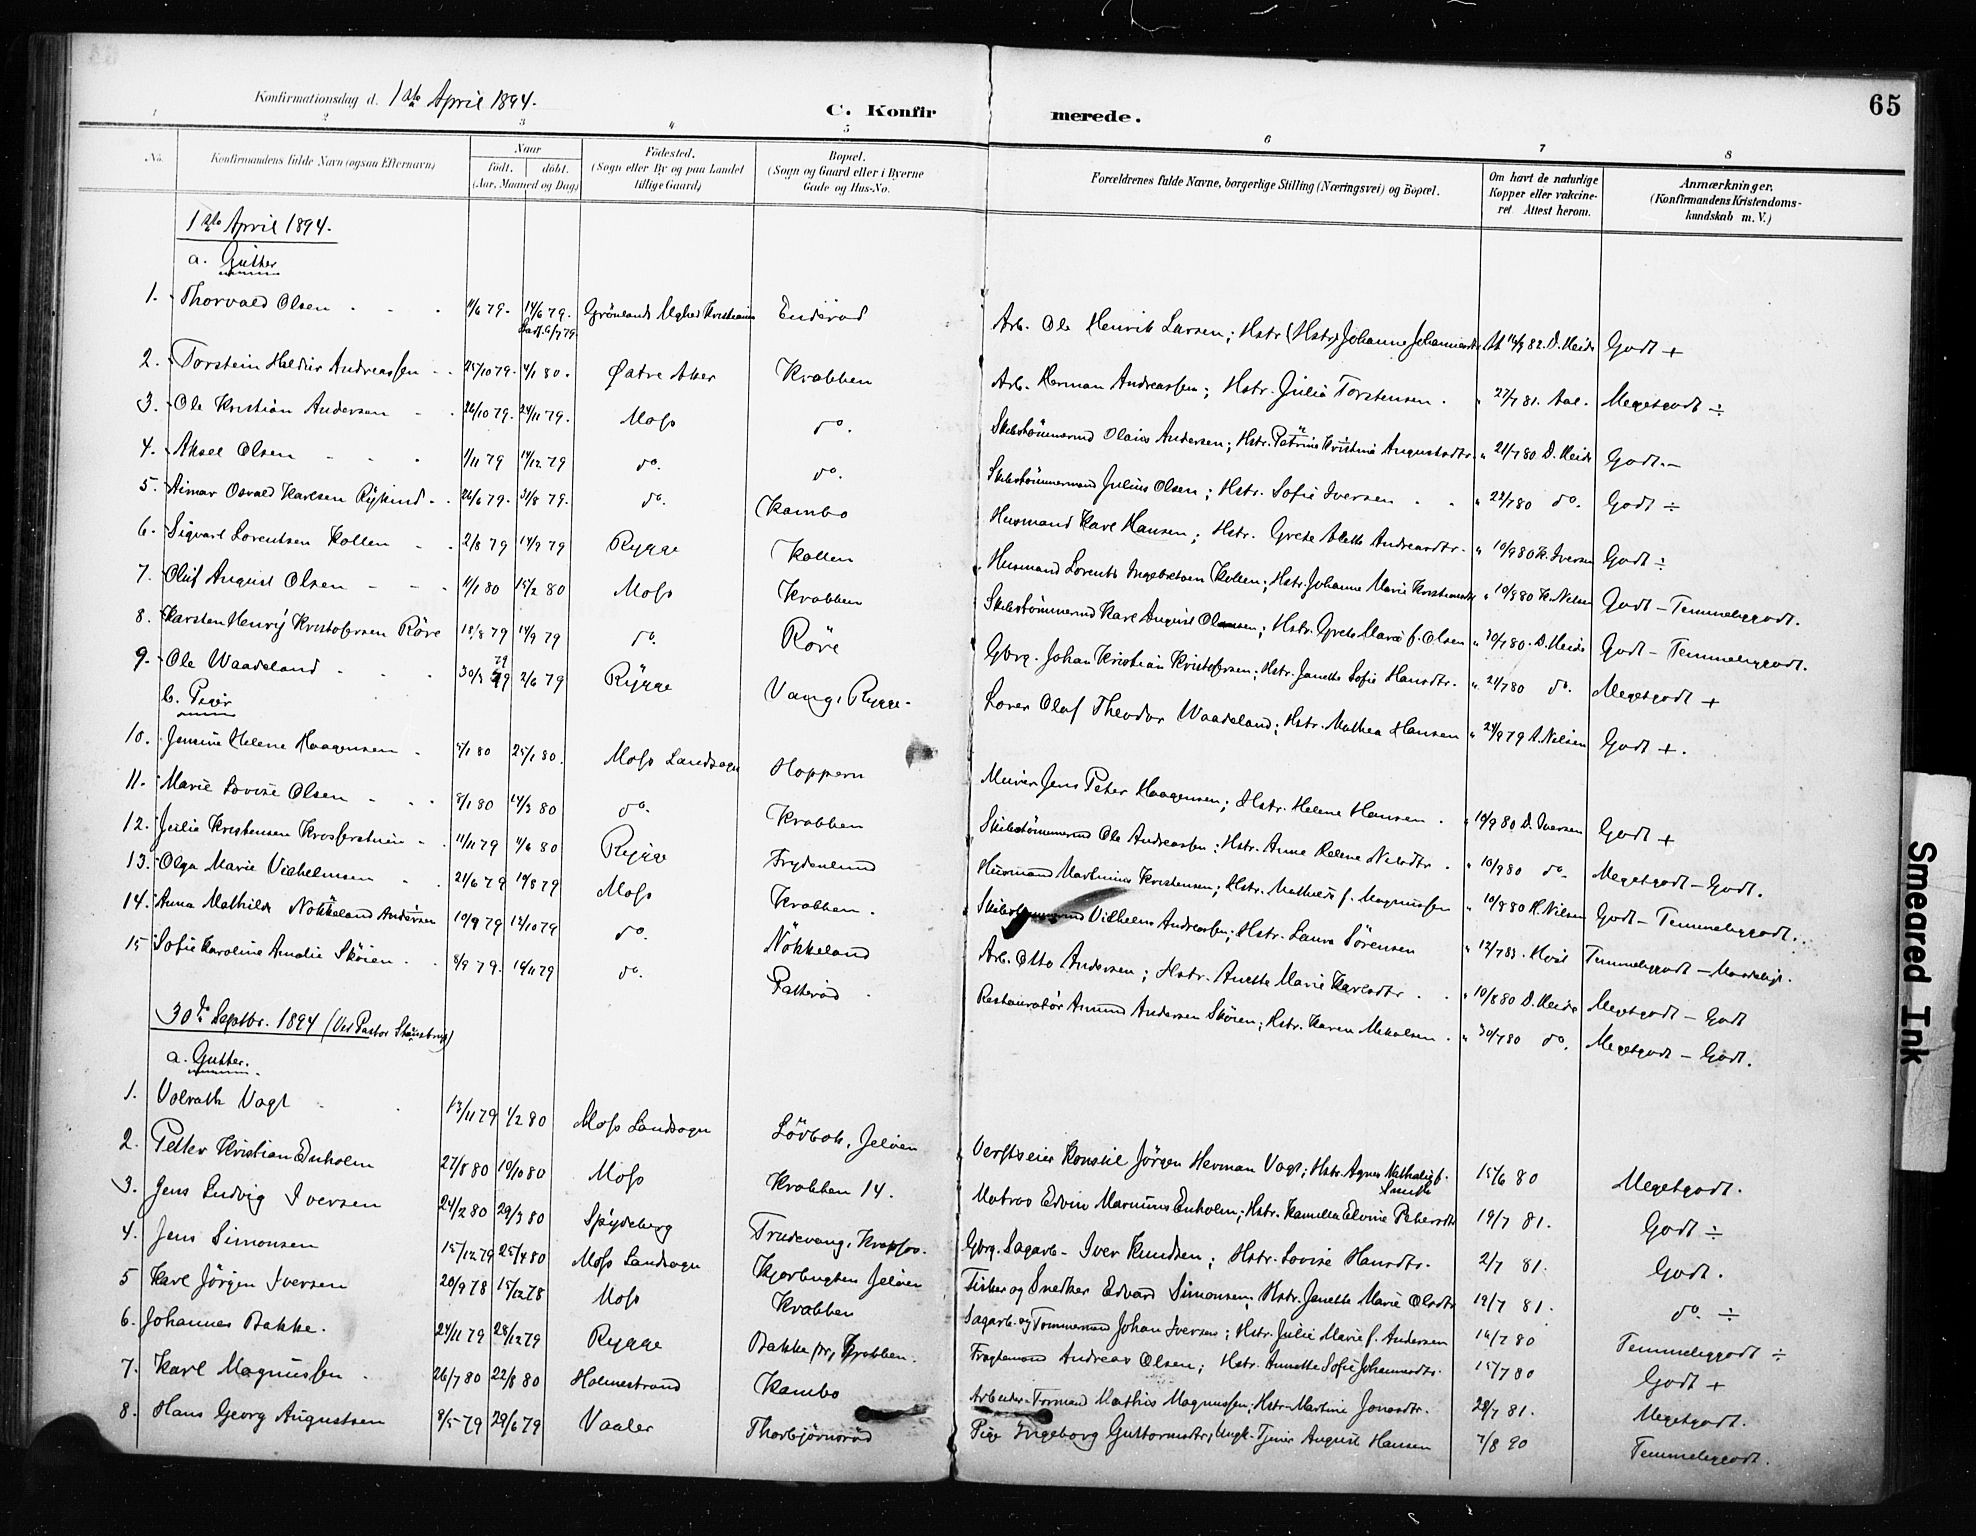 65
Konfirmationsdag d. 1ste April 1894.
C. Konfirmerede.
1 2 3 4 5 6 7 8
No.
Konfirmandens fulde Navn (ogsaa Efternavn)
Naar
født. døbt.
(Aar, Maaned og Dag)
Fødested.
(Sogn eller By og paa Landet
tillige Gaard)
Bopæl.
(Sogn og Gaard eller i Byerne
Gade og Hus-No.
Forældrenes fulde Navne, borgerlige Stilling (Næringsvei) og Bopæl.
Om havt de naturlige
Kopper eller vakcine-
ret. Attest herom.
Anmærkninger.
(Konfirmandens Kristendoms-
kundskab m. V.)
1ste April 1894.
a. Gutter
1. Thorvald Olsen 11/6 79. 14/6 79. Grönlands Mghed Kristiania Enderöd Arb. Ole Henrik Larsen; Hstr. (Hstr) Johanne D. Heide Godt +
2. Torstein Haldur Andreassen 25/10 79. 4/1 80. Østre Aker Krabben Arb. Herman Andreassen; Hstr. Julie Torstensen. " 27/7 81. Aal. Megetgodt ÷
3. Ole Kristian Andersen 26/10 79. 24/11 79. Moss do. Skibstömmermd Olaus Andersen; Hstr. Petrine Kristine Augustadtr. " 21/7 80 D. Heide Godt.-
4. Aksel Olsen 1/11 79 14/12 79 do. do. Skibstömmermand Julius Olsen; Hstr. Sofie Iversen " 22/7 80 do. Godt ÷
5. Osvald Karlsen 26/6 79. 31/8 79. do. Kambo Husmand Karl Hansen; Hstr. Grete Alette Andreasdtr. " 10/9 80 K. Iversen Godt ÷
6. Sigvart Lorentsen Kollen 2/8 79 14/9 79 Rygge Kollen Husmand Lorents Ingebretsen Kollen; Hstr. Johanne Marie " 10/8 80 K. Nilsen Godt - Temmeliggodt.
7. Oluf August Olsen 11/1 80 15/2 80 Moss Krabben Skibstömmermd Karl August Olsen; Hstr. Grete Marie f. Olsen " 30/7 80. D. Heide Godt - Temmeliggodt.
8. Karsten Henry Kristofersen Röre 18/8 79 14/9 79 do. Röre Gbrg. Johan Kristian Kristofersen; Hstr. Janette Sofie Hansdtr. " 21/7 80 do. Megetgodt +
9. Ole Waadeland 30/3 79 2/6 79 Rygge Vang, Rygge. Lærer Olaf Theodor Waadeland; Hstr. Mathea Hansen " 24/9 79 A. Nilsen Godt +.
b. Piger
10. Jensine Helene Haagensen 5/1 80 25/1 80. Moss Landsogn Hoppern Murer Jens Peter Haagensen; Hstr. Helene Hansen. " 10/9 80 D. Iversen Godt +
11. Marie Lovise Olsen 8/1 80 14/3 80 do. Krabben Skibstömmermd Ole Andreassen; Hstr. Anne Helene Nilsdtr. " 10/9 80 do. Megetgodt - Godt.
12. Julie Kristensen 11/11 79 4/6 80 Rygge Frydenlund Husmand Martinius Kristensen; Hstr. Mathilde f. Magnussen " 10/8 80 K. Nilsen Godt - Temmeliggodt.
13. Olga Marie Vilhelmsen 21/6 79 10/8 79 Moss Krabben. Vilhelm Andreassen; Hstr. Laura Sörensen " 12/7 83. Temmeliggodt - Maadeligt.
14. Anna Mathilde Nökkeland Andersen 10/9 79 12/10 79 do. Nökkeland Arb. Otto Andersen; Hstr. Anette Marie Karlsdtr. " 10/8 80 D. Heide Megetgodt - Godt
15 Sofie Karoline Amalie Sköien. 8/9 79. 16/11 79 do. Patteröd Restauratör Amund Andersen Sköien; Hstr. Karen Mikalsen. " 30/7 80 do. Megetgodt - Godt.
30te Septbr. 1894 (Ved Pastor
a. Gutter.
1. Volrath Vogt 13/11 79 1/2 80 Moss Landsogn Lövbak, Jelöen Verftseier Konsul Jörgen Herman Vogt; Hstr. Agnes Nathalie f. Smith 15/6 80 Megetgodt.
2. Petter Kristian Enholm 27/8 80 10/10 80 Moss Krabben 14. Matros Edvin Marinius Enholm; Hstr. Kamilla Elvine Petersdtr 19/7 81. Godt ÷
3. Jens Ludvig Iversen 24/2 80 29/3 80 Spydeberg Trudevang, Gbrg. Sagarb. Iver Knudsen; Hstr. Lovise Hansdtr. 2/7 81. Godt.
4. Jens Simonsen 15/12 79 25/4 80 Moss Landsogn Kjerbugten Jelöen Fisker og Snedker Edvard Simonsen, Hstr. Janette Marie Olsdtr 19/7 81. do. ÷
5 Karl Jörgen Iversen 20/9 78 15/12 78 Moss Krabben Sagarb. og Tömmermd Johan Iversen; Hstr. Julie Marie f. Andersen 16/7 80 Temmeliggodt ÷
6. Johannes Bakke. 24/11 79 28/12 79 Rygge Bakke pr, Krabben. Fragtemand Andreas Olsen; Hstr. Annette Sofie Johannesdtr. 15/7 80 Godt +
7. Karl Magnussen 26/7 80 22/8 80 Holmestrand Kambo Arbeider-Formand Mathis Magnussen, Hstr. Martine Jonasdtr. 28/7 81. Megetgodt.
8. Hans Georg Augustsen 9/5 79 29/6 79 Vaaler Thorbjørnsröd Pige Ingeborg Guttormsdtr, Ungk. Tjener August Hansen 7/8 90 Temmeliggodt.
Smeared Ink